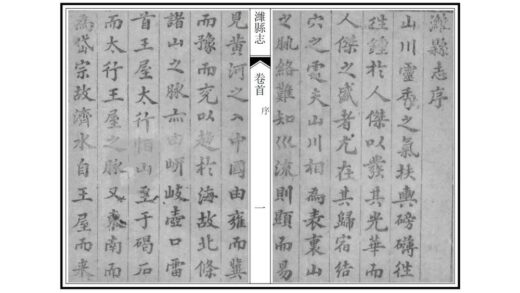 濰縣志序
山川靈秀之氣扶輿磅礴往
往鍾於人傑以發其光華而
人傑之盛者尤在其歸宿結
穴之靈夫山川相為表裏山
之脉絡難知巛流則顯而易
濰縣志
卷首
序
一
見黄河之入中國由雍而冀
而豫而兖以趨於海故北條
諸山之脉亦由岍岐壺口雷
首王屋太行恒山至于碣石
而太行王屋之脉又東南而
為岱宗故濟水自王屋而来